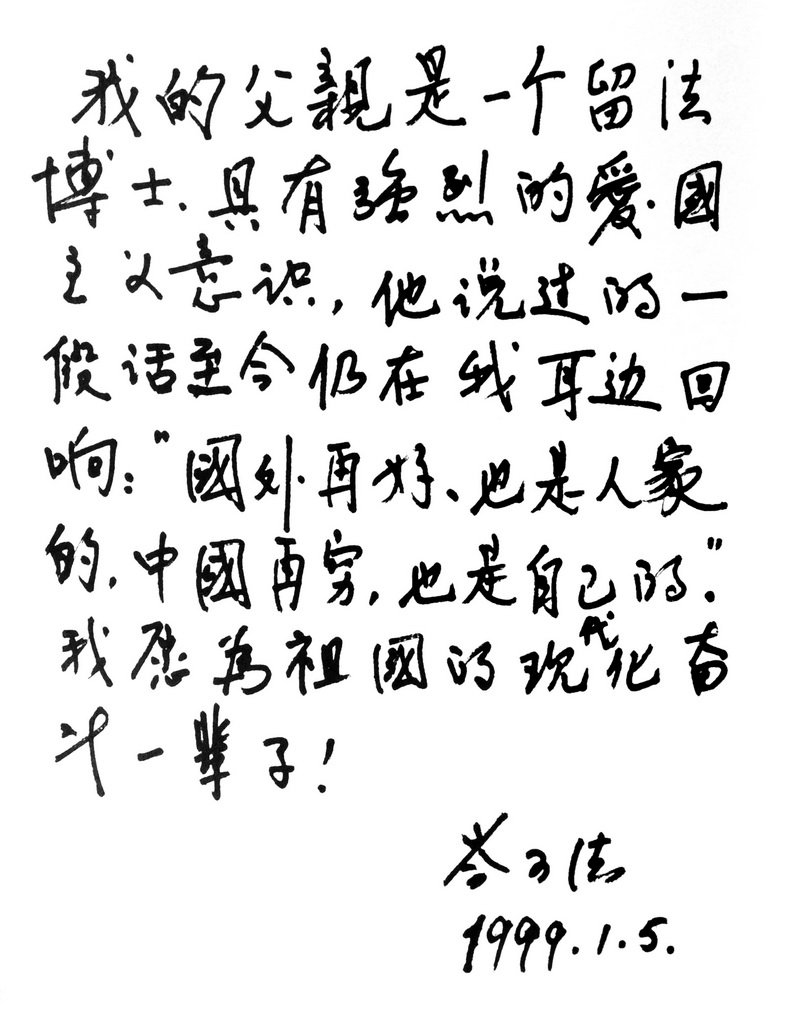 我的父親是一个留法
博士、具有強烈的愛國
主义意识，他说过的一
段话至今仍在我耳边回
响："國外再好、也是人家
的，中國再穷，也是自己的。"
我愿為祖國的现代化奋
斗一輩子！
岑可法
1999.1.5.